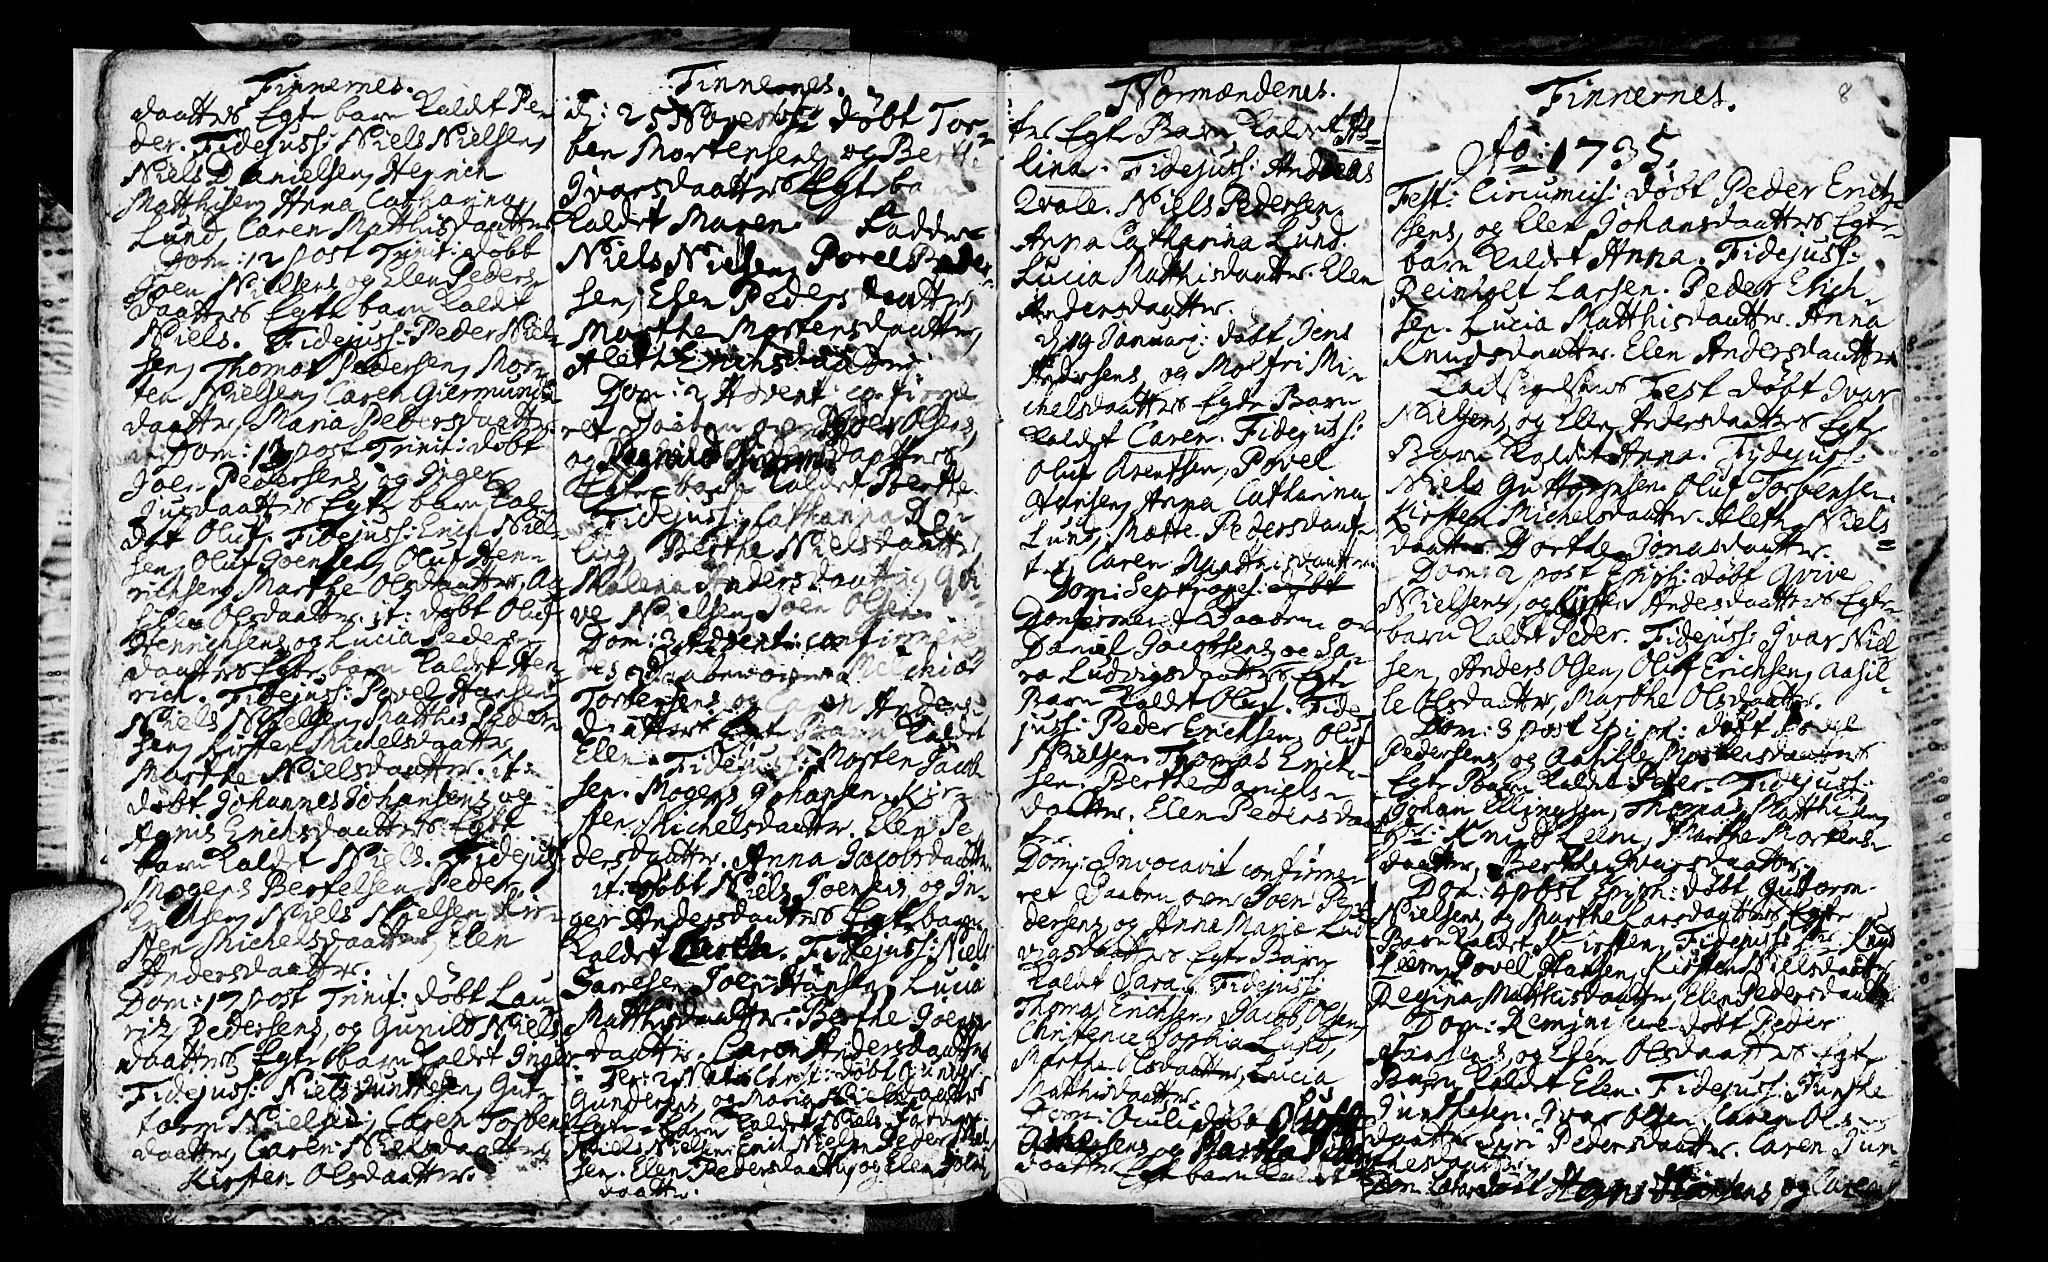 Finnernes.
daatters Egte barn kaldet Pe-
der. Fidejuss: Niels Nielsen,
Niels Danielsen, Henrich
Matthisen, Anna Catharina
Lund, Caren Matthisdaatter
Dom: 12 post Trinit: døbt
Joen Nielsens, og Elen Peders
daatters Egte barn kaldet
Niels. Fidejuss: Peder Niel-
sen, Thomas Pedersen, Mor-
ten Nielsen, Caren Giermunds
daatter, Maria Pedersdaatter.
Dom: 13 post Trinit: døbt
Joen Pedersens, og Inger
daatters Egte barn kal-
det Oluf. Fidejuss: Erich Niel-
sen, Oluf Joensen, Oluf Hen-
richsen, Marthe Olsdaatter, Aa-
sille Olsdaatter. it: døbt Oluf
Henrichsens, og Lucia Peders-
daatters Egte barn kaldet Hen-
rich. Fidejuss: Povel Hansen,
Niels Nielsen, Matthis Peder-
sen, Kirsten Michelsdaatter,
Marthe Nielsdaatter. it:
døbt Johannes Johansens, og
Erichsdaatters Egte
barn kaldet Niels. Fidejuss:
Mogens Bertelsen, Peder
Niels Nielsen, Kir-
sten Michelsdaatter, Elen
Andersdaatter.
Dom: 17 post Trinit: døbt Lau-
ritz Pedersens, og Gunild Niels
daatters Egte barn kaldet Inger
Fidejuss: Niels Gunthesen, Gut-
torm Nielsen, Caren Torbens
daatter, Caren Nielsdaatter,
Kirsten Olsdaatter.
Finnernes.
d: 25 November døbt Tor-
ben Mortensens, og Berthe
Ivarsdaatters Egte barn
kaldet Maren. Fadder-
Niels Nielsen, Povel Peder-
sen, Elen Peders daatter,
Marthe Mortensdaatter,
Aleth Erichsdaatter.
Dom: 2 Advent: confirme-
ret Daaben over Joen Olsens,
og
Egte barn kaldet Berthe.
Fidejuss: Catharina
ling, Berthe Nielsdaatter,
Malena Andersdaatter,
ve Nielsen, Joen Olsen.
Dom: 3 Advent: confirmere-
Daaben over
Torbensens, og Caren Anders-
daatters Egte Barn kaldet
Elen. Fidejuss: Morten Jacob-
sen. Mogens Johansen. Kir-
sten Michelsdaatter. Elen Pe-
dersdaatter. Anna Jacobsdaatter.
it: døbt Niels Joensens, og In-
ger Andersdaatters Egte barn
kaldet Fidejuss: Niels
Joen Hansen, Lucia
Matthisdaatter. Berthe Joens-
daatter. Caren Andersdaatter
Fer: 2 Nativ: Christi: døbt Gunder
Gundersens, og Maria Nielsdaatters
Egte barn kaldet Niels. Faddere
Niels Nielsen Erich Nielsen Peder Niel-
sen. Elen Pedersdaatter, og Elen Joens
daatter.
Normændenes.
ters Egte Barn kaldet
lina. Fidejuss: Andreas
Qvale. Niels Pedersen.
Anna Catharina Lund.
Lucia Matthisdaatter. Elen
Andersdaatter.
d: 19 Januarj: døbt Jens
Andersens, og Molfri Mi-
chelsdaatters Egte Barn
kaldet Caren. Fidejuss:
Oluf Arentsen, Povel
Hansen, Anna Catharina
Lund, Mette Pedersdaat-
ter, Caren Matthisdaatter
Dom: Septuages:
Confirmeret Daaben over
Daniel Jacobsens, og Sa-
ra Ludvigsdaatters Egte
Barn kaldet Oluf. Fide-
juss: Peder Erichsen, Oluf
Nielsen. Thomas Erich-
sen. Berthe Daniels-
daatter. Elen Pedersdaat
ter.
Dom: Invocavit confirme-
ret Daaben over Joen Pe-
dersens, og Anne Marie Lud-
vigsdaatters Egte Barn
kaldet Sara. Fidejuss:
Thomas Erichsen, Jacob Olsen,
Christence Sophia Lund,
Marthe Olsdaatter, Lucia
Mathisdaatter.
Dom: Oculi døbt
og
daatters Egte barn kaldet
Finnernes. 8
Ao: 1735.
Fest: Circumcis: døbt Peder Erich-
sens, og Elen Johansdaatters Egte
barn kaldet Anna. Fidejuss:
Reinholt Larsen. Peder Erich-
sen. Lucia Matthisdaatter. Anna
Knudsdaatter. Elen Andersdaatter
Fest døbt Ivar
Nielsens, og Elen Andersdaatters Egte
Barn kaldet Anna. Fidejuss:
Niels Guttormsen. Oluf Torbensen.
Kirsten Michelsdaatter. Aleth Niels-
daatter. Dorthe Jonasdaatter.
Dom: 2 post Epiph: døbt Qvive
Nielsens, og Andersdaatters Egte-
barn kaldet Peder. Fidejuss: Ivar Niel
sen, Anders Olsen, Oluf Erichsen, Aasil-
le Olsdaatter, Marthe Olsdaatter.
Dom: 3 post Epiph: døbt Povel
Pedersens, og Aasille Mortensdaatters
Egte Barn kaldet Peter. Fidejuss:
Johan Ellingsen, Thomas Matthisen,
Hr: Knud Leem, Marthe Mortens-
daatter, Berthe Ivarsdaatter.
Dom: 4 post Epiph: døbt Guttorm
Nielsens, og Marthe Larsdaatters Egte
Barn kaldet Kirsten. Fidejuss: Hr: Knud
Leem, Povel Hansen, Kirsten Nielsdaatter
Regina Matthisdaatter, Elen Pedersdaatter
Dom: Reminiscere døbt Peder
Hansens, og Elen Olsdaatters Egte
Barn kaldet Elen. Fidejuss: Gunthe
Gunthesen. Ivar Olsen. Caren Ols-
daatter. Pedersdaatter. Caren Gun-
thesdaatter
Dom: døbt Hans Hansens, og Caren